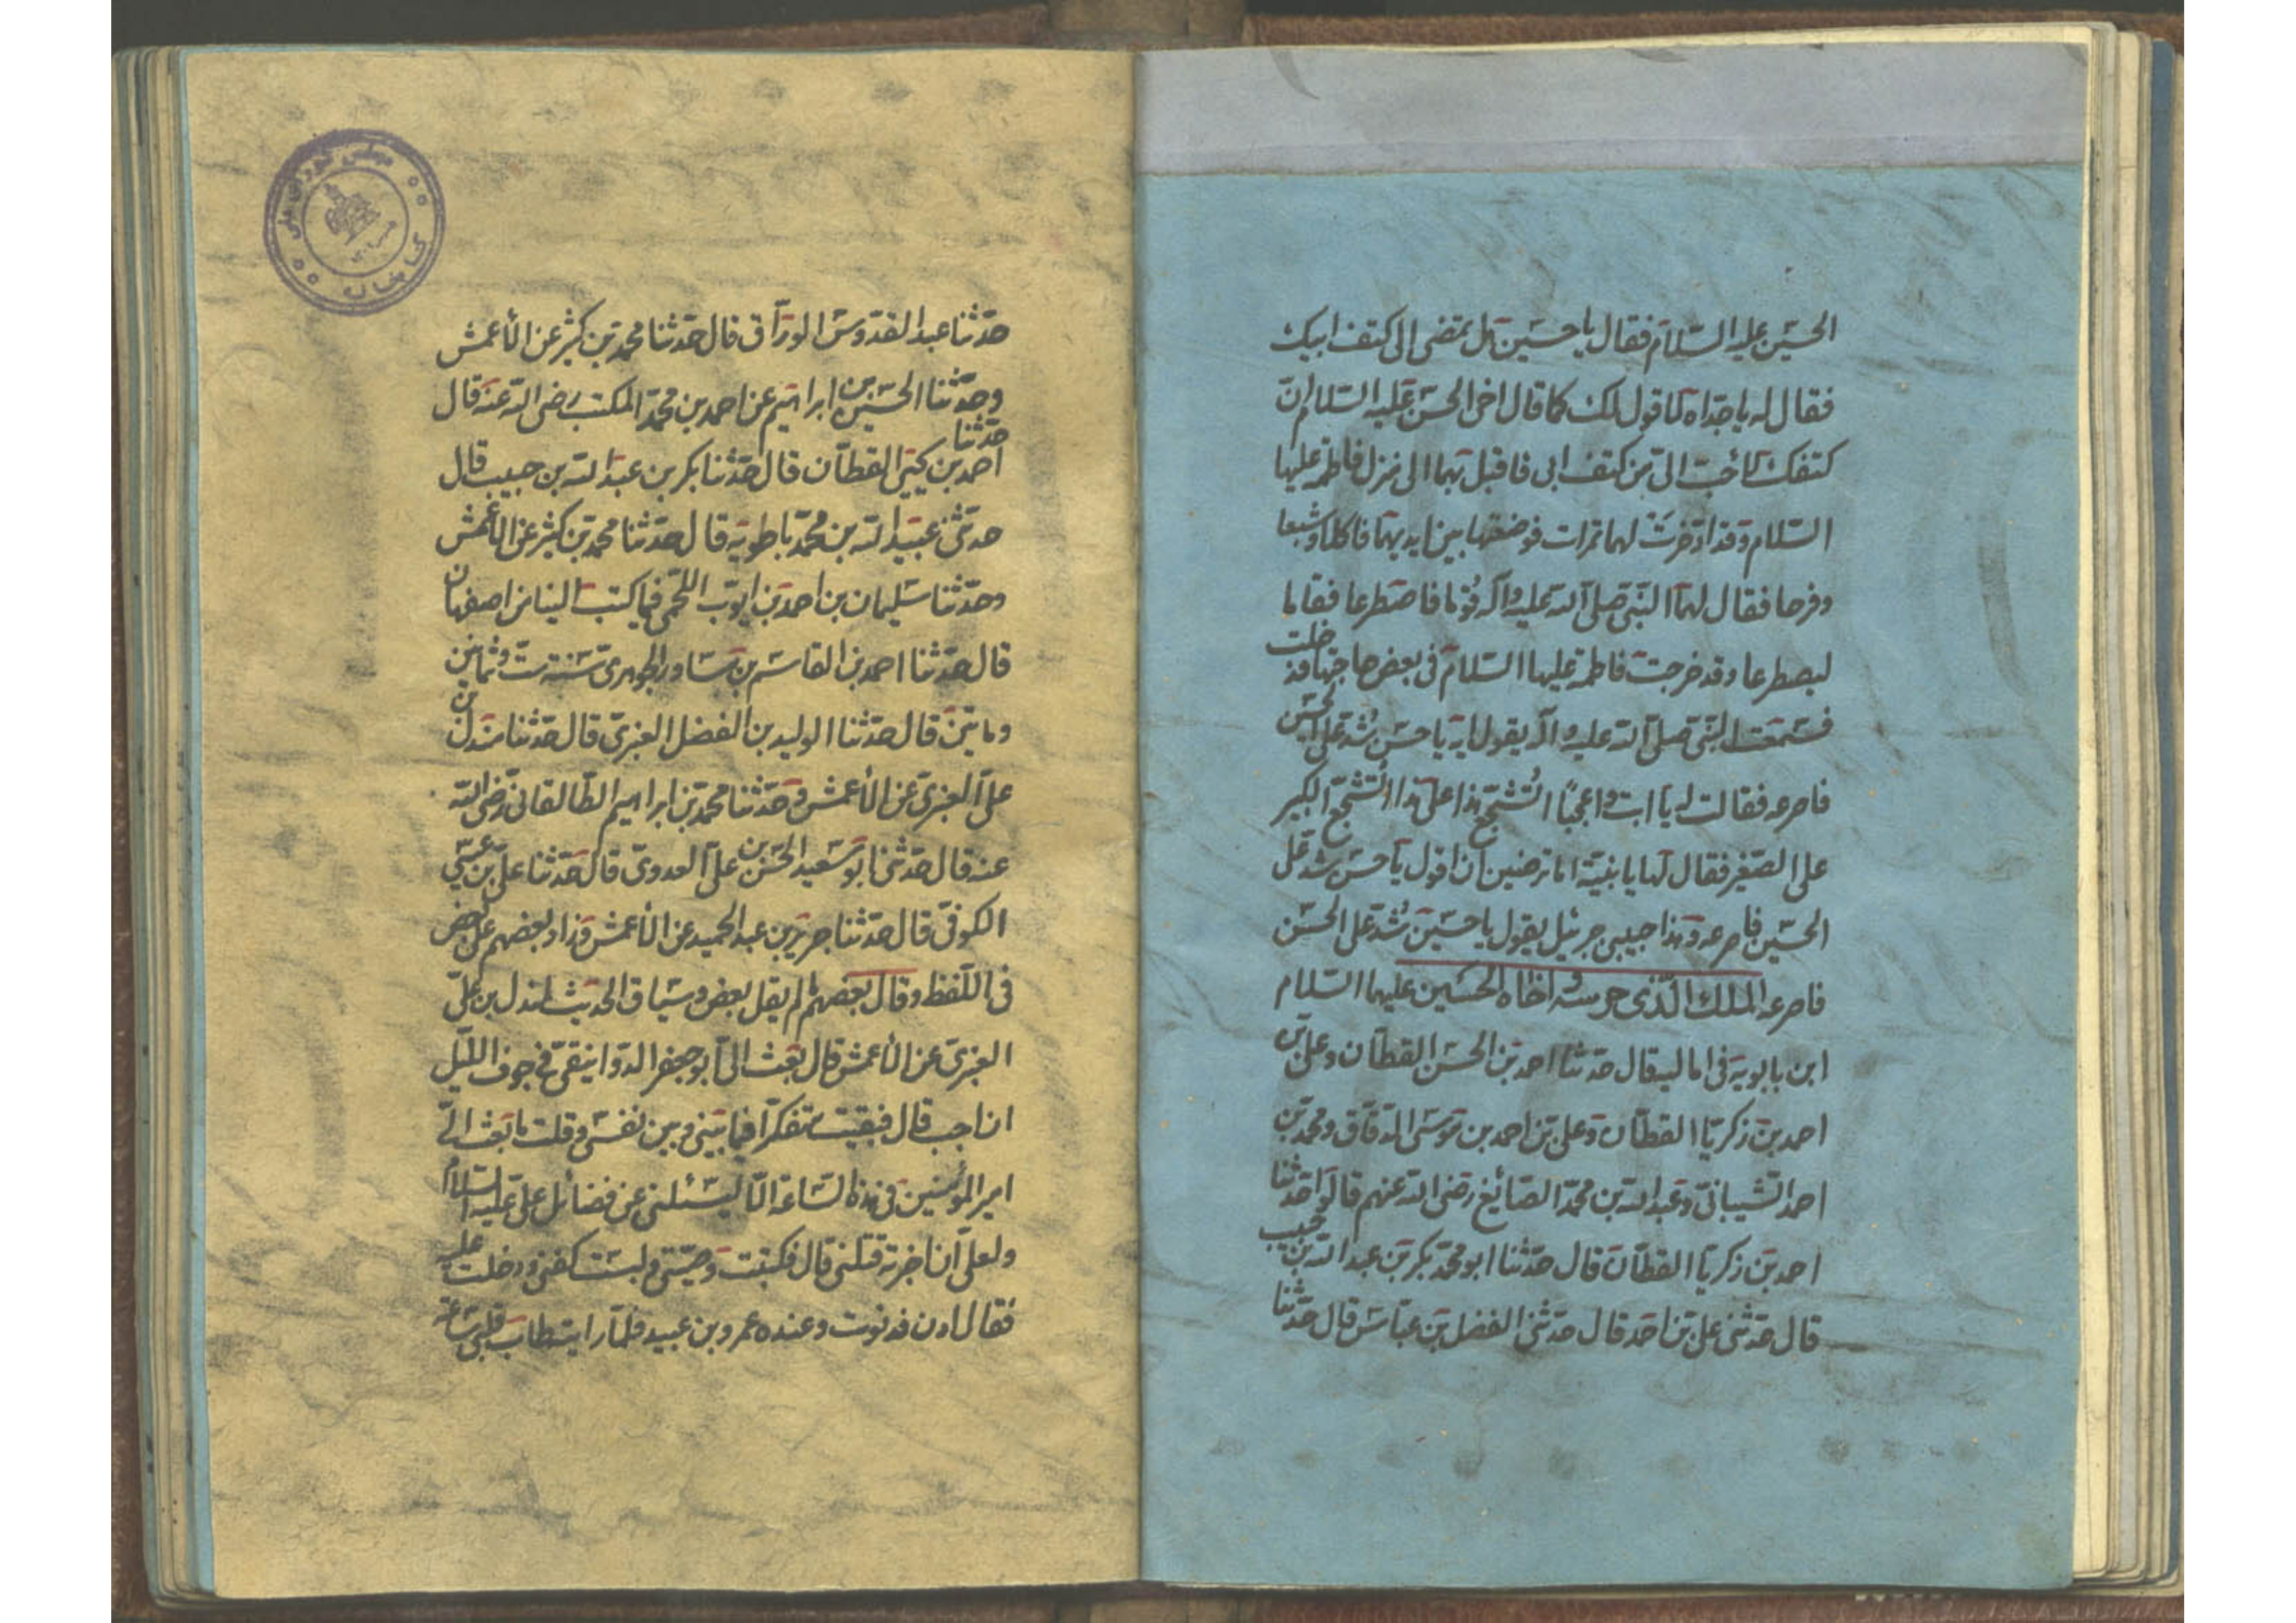 الحسين عليه السلام فقال يا حسين هل تمضى الى كتف ابيك
فقال له يا جداه لا اقول لك كما قال اخى الحسن عليه السلام ان
كتفك لاحب الى من كتف ابى فاقبل بهما الى منزل فاطمة عليها
السلام وقد ادخرت لهما تمرات فوضعتها بين ايديهما فاكلا وشبعا
وفرحا فقال لهما النبى صلى الله عليه وآله قوما فاصطرعا فقاما
ليصطرعا وقد خرجت فاطمة عليها السلام فى بعض حاجتها فدخلت
فسمعت النبى صلى الله عليه وآله يقول ايه يا حسن شد على الحسين
فاصرعه فقالت له يا ابت واعجبا اتشجع هذا على هذا اتشجع الكبير
على الصغير فقال لها يا بنية اما ترضين ان اقول يا حسن شد على
الحسين فاصرعه وهذا حبيبى جبرئيل يقول يا حسين شد على الحسن
فاصرعه الملك الذى حرسه واخاه الحسين عليهما السلام
ابن بابويه فى اماليه قال حدثنا احمد بن الحسن القطان وعلى بن
احمد بن زكريا القطان وعلى بن احمد بن موسى الدقاق ومحمد بن
احمد الشيبانى وعبد الله بن محمد الصائغ رضى الله عنهم قالوا حدثنا
احمد بن زكريا القطان قال حدثنا ابو محمد بكر بن عبد الله بن حبيب
قال حدثنى على بن احمد قال حدثنى الفضل بن عباس قال حدثنا
حدثنا عبد القدوس الوراق قال حدثنا محمد بن كثير عن الأعمش
وحدثنا الحسين بن ابراهيم عن احمد بن محمد المكتب رضى الله عنه قال حدثنا
احمد بن يحيى القطان قال حدثنا بكر بن عبد الله بن حبيب قال
حدثنى عبيد الله بن محمد باطويه قال حدثنا محمد بن كثير عن الأعمش
وحدثنا سليمان بن احمد بن ايوب اللخمى فيما كتب الينا من اصفهان
قال حدثنا احمد بن القاسم بن مساور الجوهرى سنة ست وثمانين
ومأتين قال حدثنا الوليد بن الفضل العنزى قال حدثنا مندل بن
على العنزى عن الأعمش وحدثنا محمد بن ابراهيم الطالقانى رضى الله
عنه قال حدثنى ابو سعيد الحسن بن على العدوى قال حدثنا على بن عيسى
الكوفى قال حدثنا جرير بن عبد الحميد عن الأعمش وزاد بعضهم على بعض
فى اللفظ وقال بعضهم ما لم يقل بعض وسياق الحديث لمندل بن على
العنزى عن الأعمش قال بعث الى ابو جعفر الدوانيقى فى جوف الليل
ان اجب قال فبقيت متفكرا فيما بينى وبين نفسى وقلت ما بعث الى
امير المؤمنين فى هذه الساعة الا ليسئلنى عن فضائل على عليه السلام
ولعلى ان اخبرته قتلنى قال فكتبت وصيتى ولبست كفنى ودخلت عليه
فقال ادن فدنوت وعنده عمرو بن عبيد فلما رايته طاب قلبى ساعة
كتابخانه مجلس شوراى ملى